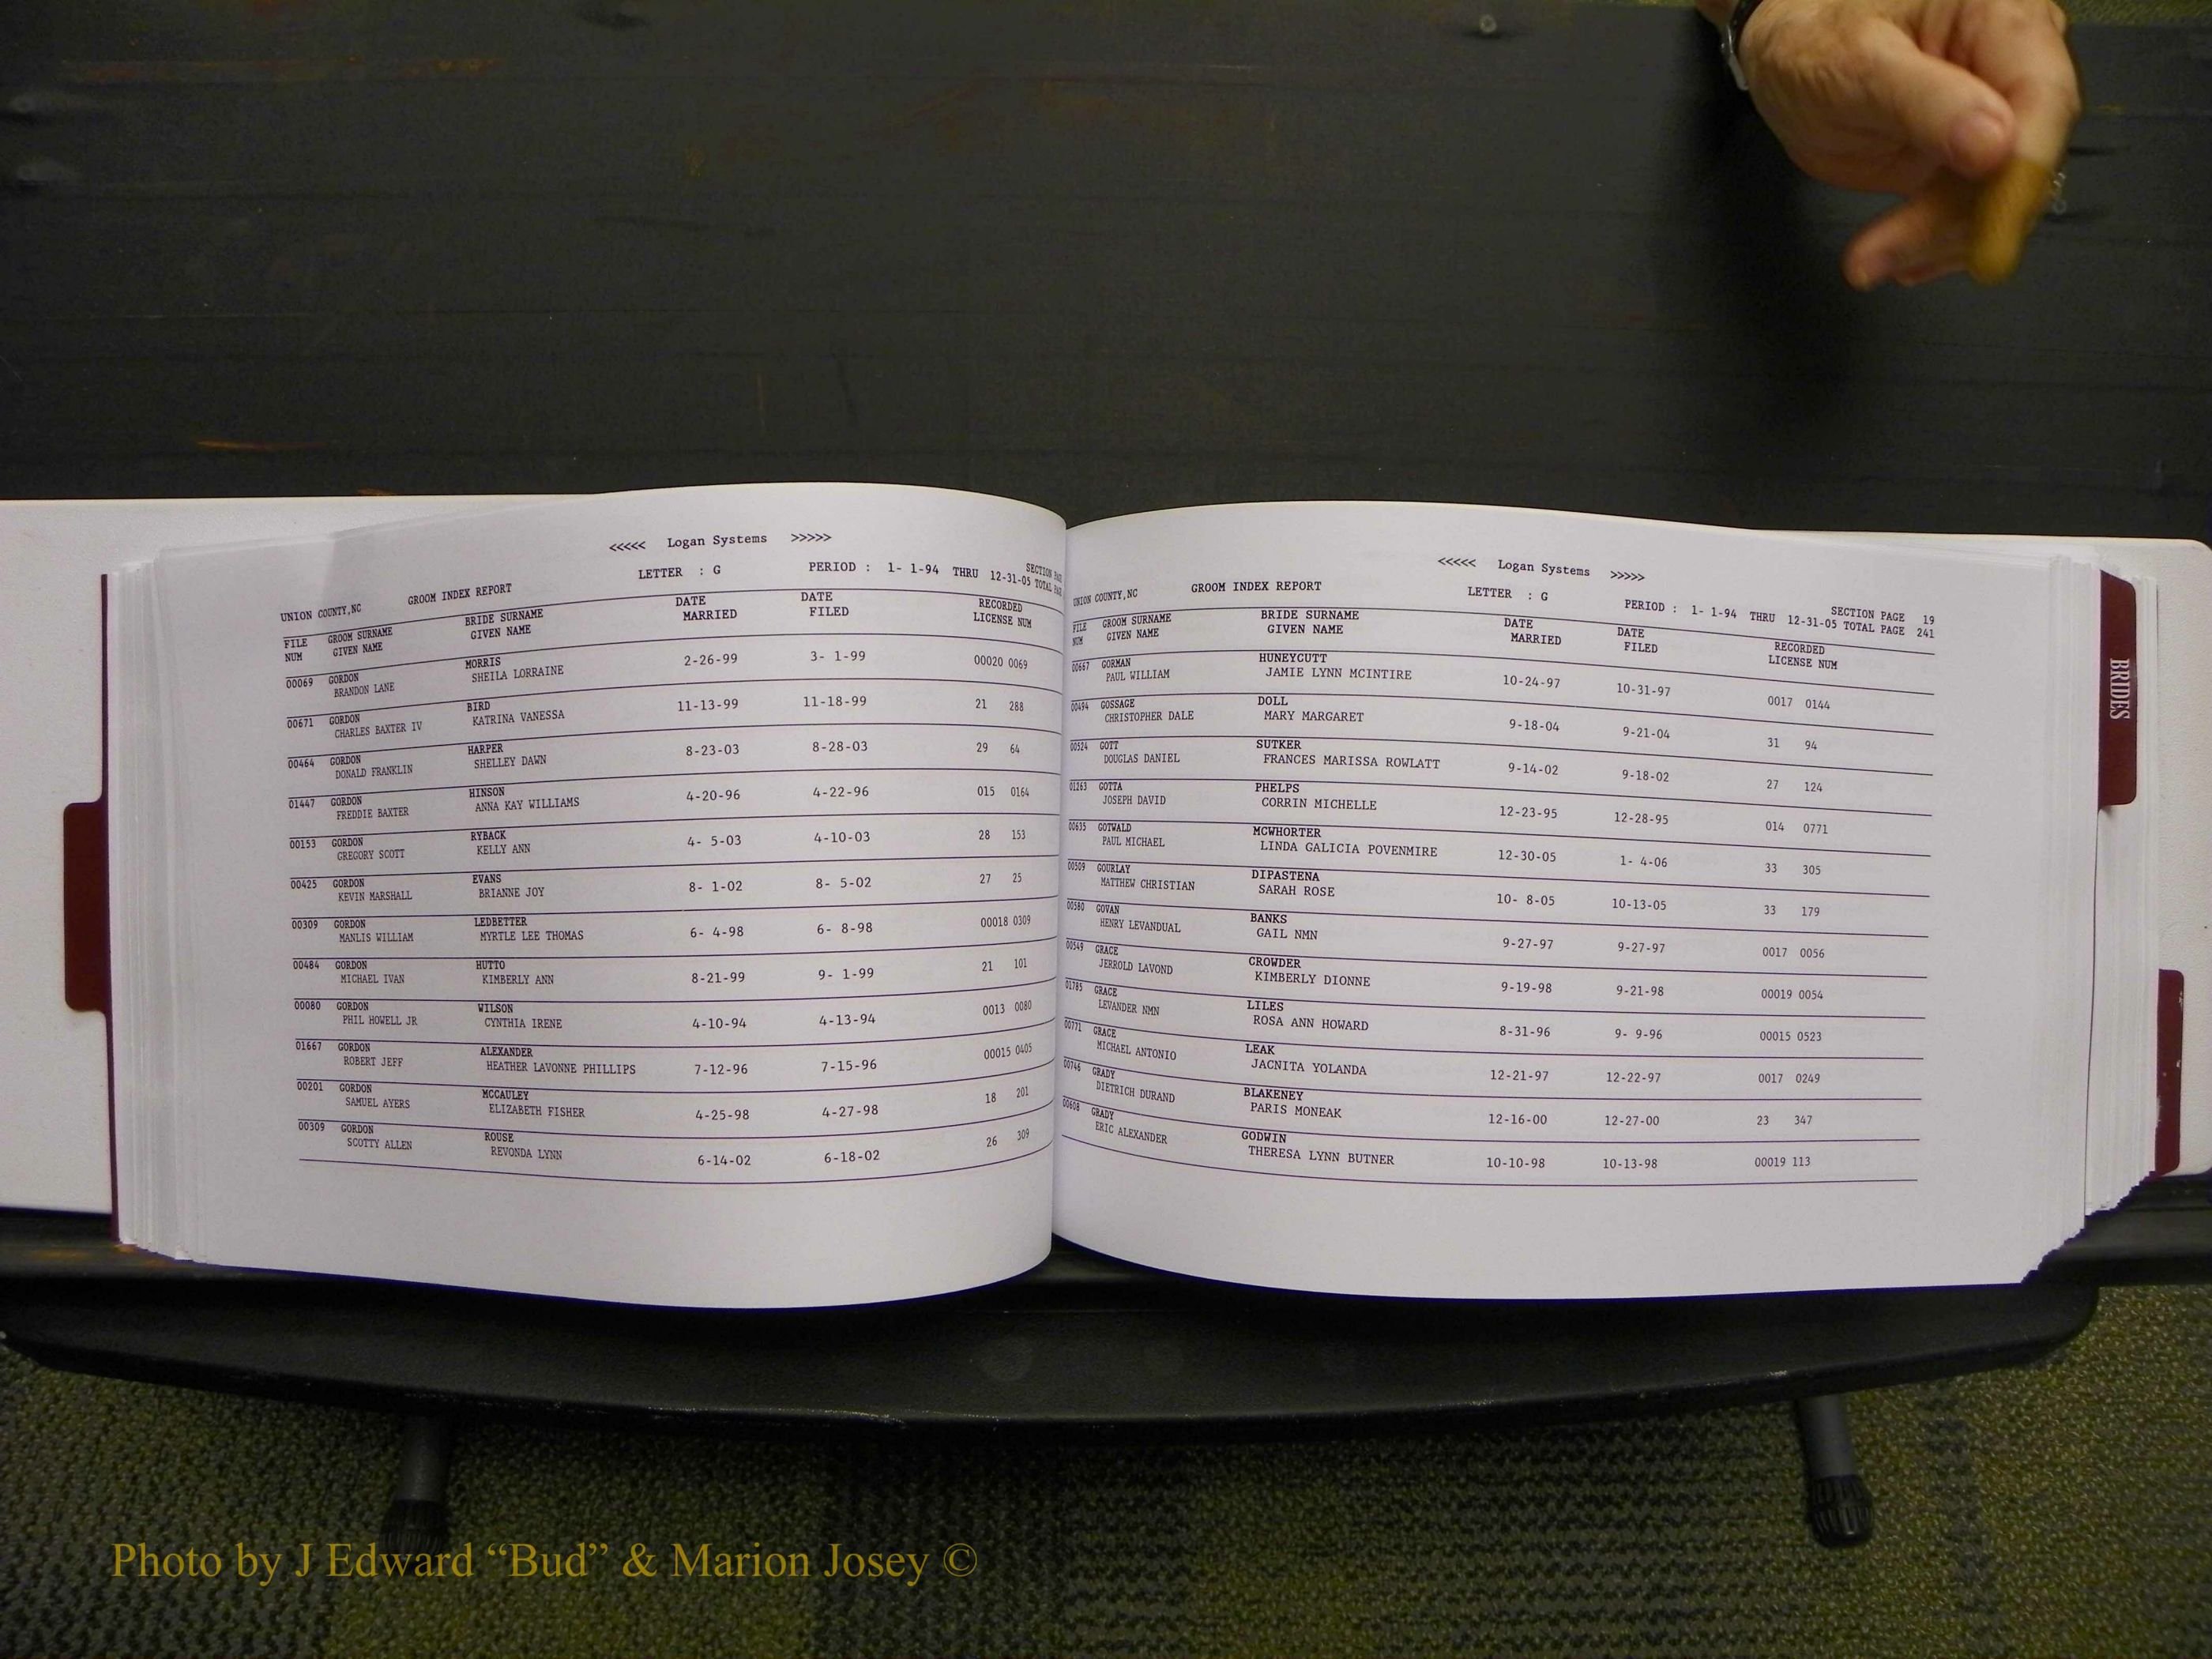 <<<<< Logan Systems >>>>>
UNION COUNTY,NC GROOM INDEX REPORT LETTER : G PERIOD : 1- 1-94 THRU 12-31-05 SECTION
TOTAL
FILE GROOM SURNAME BRIDE SURNAME DATE DATE RECORDED
NUM GIVEN NAME GIVEN NAME MARRIED FILED LICENSE NUM
00069 GORDON MORRIS 2-26-99 3- 1-99 00020 0069
BRANDON LANE SHEILA LORRAINE
00671 GORDON BIRD 11-13-99 11-18-99 21 288
CHARLES BAXTER IV KATRINA VANESSA
00464 GORDON HARPER 8-23-03 8-28-03 29 64
DONALD FRANKLIN SHELLEY DAWN
01447 GORDON HINSON 4-20-96 4-22-96 015 0164
FREDDIE BAXTER ANNA KAY WILLIAMS
00153 GORDON RYBACK 4- 5-03 4-10-03 28 153
GREGORY SCOTT KELLY ANN
00425 GORDON EVANS 8- 1-02 8- 5-02 27 25
KEVIN MARSHALL BRIANNE JOY
00309 GORDON LEDBETTER 6- 4-98 6- 8-98 00018 0309
MANLIS WILLIAM MYRTLE LEE THOMAS
00484 GORDON HUTTO 8-21-99 9- 1-99 21 101
MICHAEL IVAN KIMBERLY ANN
00080 GORDON WILSON 4-10-94 4-13-94 0013 0080
PHIL HOWELL JR CYNTHIA IRENE
01667 GORDON ALEXANDER 7-12-96 7-15-96 00015 0405
ROBERT JEFF HEATHER LAVONNE PHILLIPS
00201 GORDON MCCAULEY 4-25-98 4-27-98 18 201
SAMUEL AYERS ELIZABETH FISHER
00309 GORDON ROUSE 6-14-02 6-18-02 26 309
SCOTTY ALLEN REVONDA LYNN
<<<<< Logan Systems >>>>>
UNION COUNTY,NC GROOM INDEX REPORT LETTER : G PERIOD : 1- 1-94 THRU 12-31-05 SECTION PAGE 19
TOTAL PAGE 241
FILE GROOM SURNAME BRIDE SURNAME DATE DATE RECORDED
NUM GIVEN NAME GIVEN NAME MARRIED FILED LICENSE NUM
00667 GORMAN HUNEYCUTT 10-24-97 10-31-97 0017 0144
PAUL WILLIAM JAMIE LYNN MCINTIRE
00494 GOSSAGE DOLL 9-18-04 9-21-04 31 94
CHRISTOPHER DALE MARY MARGARET
00524 GOTT SUTKER 9-14-02 9-18-02 27 124
DOUGLAS DANIEL FRANCES MARISSA ROWLATT
01263 GOTTA PHELPS 12-23-95 12-28-95 014 0771
JOSEPH DAVID CORRIN MICHELLE
00635 GOTWALD MCWHORTER 12-30-05 1- 4-06 33 305
PAUL MICHAEL LINDA GALICIA POVENMIRE
00509 GOURLAY DIPASTENA 10- 8-05 10-13-05 33 179
MATTHEW CHRISTIAN SARAH ROSE
00580 GOVAN BANKS 9-27-97 9-27-97 0017 0056
HENRY LEVANDUAL GAIL NMN
00549 GRACE CROWDER 9-19-98 9-21-98 00019 0054
JERROLD LAVOND KIMBERLY DIONNE
01785 GRACE LILES 8-31-96 9- 9-96 00015 0523
LEVANDER NMN ROSA ANN HOWARD
00771 GRACE LEAK 12-21-97 12-22-97 0017 0249
MICHAEL ANTONIO JACNITA YOLANDA
00746 GRADY BLAKENEY 12-16-00 12-27-00 23 347
DIETRICH DURAND PARIS MONEAK
00608 GRADY GODWIN 10-10-98 10-13-98 00019 113
ERIC ALEXANDER THERESA LYNN BUTNER
BRIDES
Photo by J Edward “Bud” & Marion Josey ©